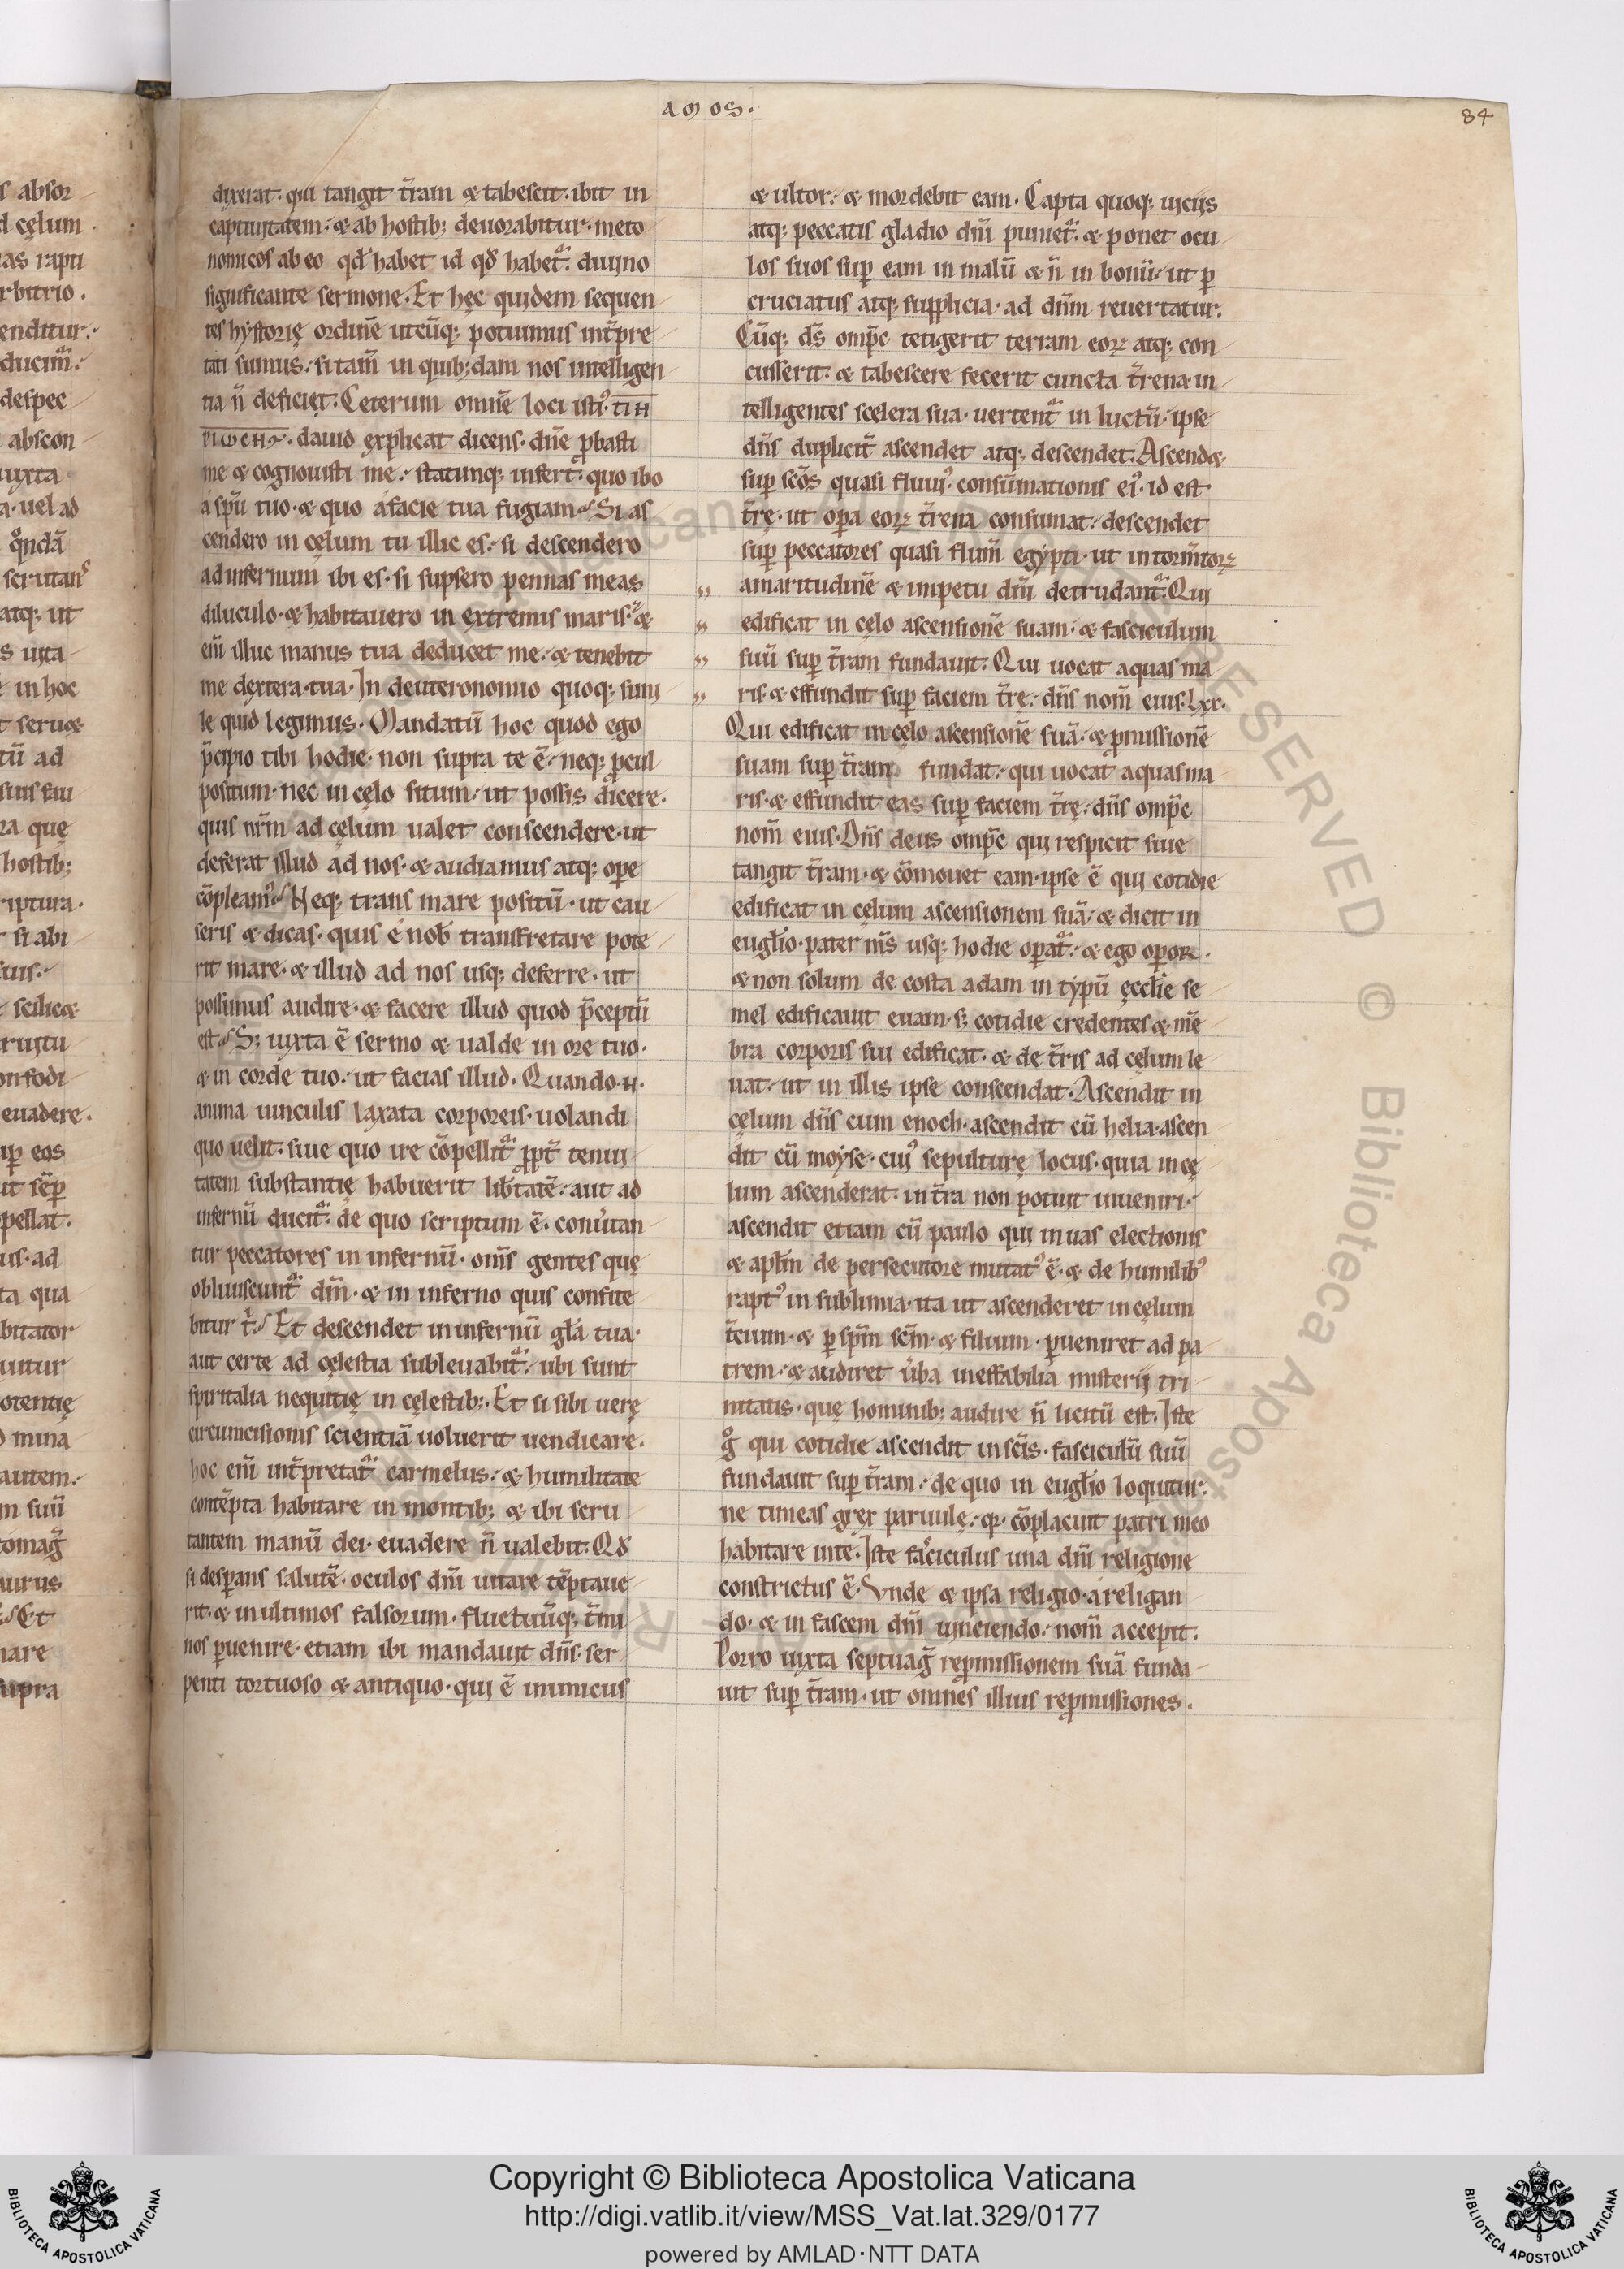 AMOS.
84
dixerat. qui tangit t̄ram & tabescit. ibit in
captiuitatem. & ab hostib; deuorabitur. meto
nomicos ab eo qd̄ habet id qd̄ habet̄. diuino
significante sermone. Et hęc quidem sequen
tes hystorię ordinē utcūq; potuimus int̄pre
tati sumus. si tam̄ in quib;dam nos intelligen
tia n̄ deficiet. Ceterum omnē loci isti᾽
dauid explicat dicens. dn̄e p̄basti
me & cognouisti me. statimq; infert. quo ibo
a spū tuo. & quo a facie tua fugiam. Si as
cendero in cęlum tu illic es. si descendero
ad infernum ibi es. si sūpsero pennas meas
diluculo. & habitauero in extremis maris. &
em̄ illuc manus tua deducet me. & tenebit
me dextera tua. In deuteronomio quoq; simi
le quid legimus. Mandatū hoc quod ego
p̄cipio tibi hodie. non supra te ē. neq; pcul
positum. nec in cęlo situm. ut possis dicere.
quis nr̄m ad cęlum ualet conscendere. ut
deferat illud ad nos. & audiamus atq; ope
cōpleam᾽. Neq; trans mare positū. ut cau
seris & dicas. quis é nob̄ transfretare pote
rit mare. & illud ad nos usq; deferre. ut
possimus audire. & facere illud quod p̄ceptū
est. S; iuxta ē sermo & ualde in ore tuo.
& in corde tuo. ut facias illud. Quando .H.
anima uinculis laxata corporeis. uolandi
quo uelit. siue quo ire cōpellit̄ ppt̄ tenui
tatem substantię habuerit lib̄tatē. aut ad
infernū ducit̄. de quo scriptum ē. conūtan
tur peccatores in infernū. om̄s gentes quę
obliuiscunt̄ dm̄. & in inferno quis confite
bitur t̄. Et descendet in infernū gl̄a tua.
aut certe ad cęlestia subleuabit̄. ubi sunt
spiritalia nequitię in cęlestib;. Et si sibi uerę
circumcisionis scientiā uoluerit uendicare.
hoc em̄ int̄pretat̄ carmelus. & humilitate
contēpta habitare in montib; & ibi scru
tantem manū dei. euadere n̄ ualebit. Qd̄
si desperans salutē. oculos dn̄i uitare tēptaue
rit. & in ultimos falsorum. fluctuūq; t̄mi
nos p̄uenire. etiam ibi mandauit dn̄s. ser
penti tortuoso & antiquo. qui ē inimicus
& ultor. & mordebit eam. Capta quoq; uiciis
atq; peccatis gladio dn̄i puniet̄. & ponet ocu
los suos sup̄ eam in malū & n̄ in bonū. ut p̄
cruciatus atq; supplicia. ad dn̄m reuertatur.
Cūq; ds̄ omp̄c tetigerit terram eoꝝ atq; con
cusserit. & tabescere fecerit cuncta t̄rena in
telligentes scelera sua. uertent̄ in luctū. ipse
dn̄s duplicit̄ ascendet atq; descendet. Ascend&
sup̄ scōs quasi fluui᾽. consūmationis ei᾽. id est
t̄rę. ut opa eoꝝ t̄rena consumat. descendet
sup̄ peccatores quasi flum̄ egypti. ut in torm̄toꝝ
amaritudinē & impetu dn̄i detrudant̄. Qui
edificat in cęlo ascensionē suam. & fasciculum
suū sup̄ t̄ram fundauit. Qui uocat aquas ma
ris. & effundit sup̄ faciem t̄rę. dn̄s nom̄ eius. Lxx.
Qui edificat in cęlo ascensionē suā. & p̄missionē
suam sup̄ t̄ram fundat. qui uocat aquas ma
ris. & effundit eas sup̄ faciem t̄rę. dn̄s omp̄c
nom̄ eius. Dn̄s deus omp̄c qui respicit siue
tangit t̄ram. & cōmouet eam. ipse ē qui cotidie
edificat in cęlum ascensionem suā. & dicit in
euglīo. pater ms̄ usq; hodie opat̄. & ego opor.
& non solum de costa adam in typū ęccl̄ie se
mel edificauit euam. s; cotidie credentes & mē
bra corporis sui edificat. & de t̄ris ad cęlum le
uat. ut in illis ipse conscendat. Ascendit in
cęlum dn̄s cum enoch. ascendit cū helia. ascen
dit cū moyse. cui᾽ sepulturę locus. quia in cę
lum ascenderat. in t̄ra non potuit inueniri.
ascendit etiam cū paulo qui in uas electionis
& apl̄m de persecutore mutat᾽ ē. & de humilib᾽
rapt᾽ in sublimia. ita ut ascenderet in cęlum
t̄cium. & p̄ spm̄ scm̄. & filium. p̄ueniret ad pa
trem. & audiret ūba ineffabilia misterij tri
nitatis. quę hominib; audire n̄ licitū est. Iste
g̊ qui cotidie ascendit in scīs. fasciculū suū
fundauit sup̄ t̄ram. de quo in euglīo loquitur.
ne timeas grex paruule. qꝛ cōplacuit patri meo
habitare in te. Iste fasciculus una dn̄i religione
constrictus ē. Vnde & ipsa religio. a religan
do. & in fascem dn̄i uinciendo. nom̄ accepit.
Porro iuxta septuaḡ rep̄missionem suā funda
uit sup̄ t̄ram. ut omnes illius rep̄missiones.
Copyright © Biblioteca Apostolica Vaticana
http://digi.vatlib.it/view/MSS_Vat.lat.329/0177
powered by AMLAD·NTT DATA
BIBLIOTECA APOSTOLICA VATICANA
BIBLIOTECA APOSTOLICA VATICANA